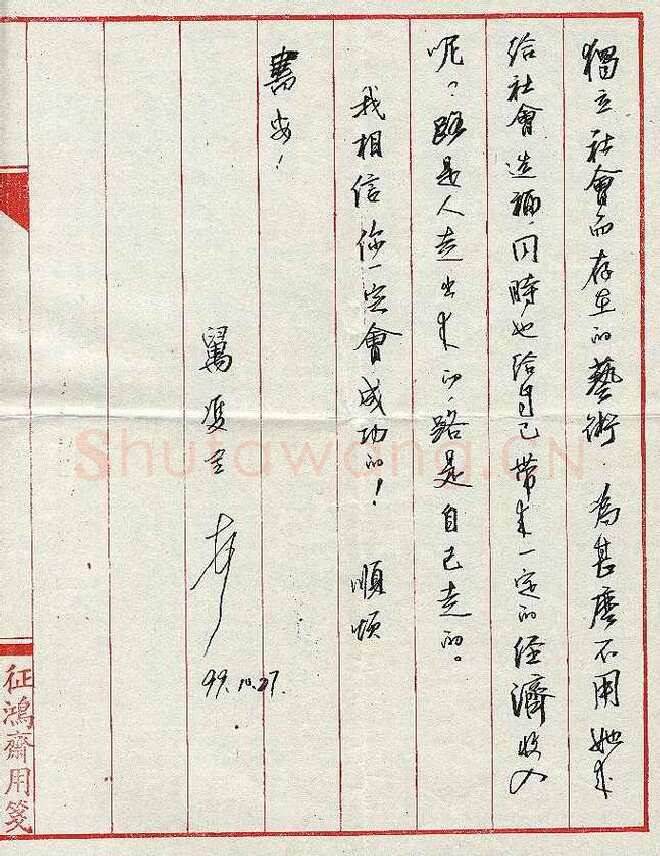 獨立社會而存在的藝術.為甚麽不用她來
給社會造福.同時也給自己带來一定的经濟收入
呢？路是人走出來的，路是自己走的。
我相信你一定會成功的！ 順頌
書安！
99.10.27.
征鴻齋用箋
Shufawang.CN